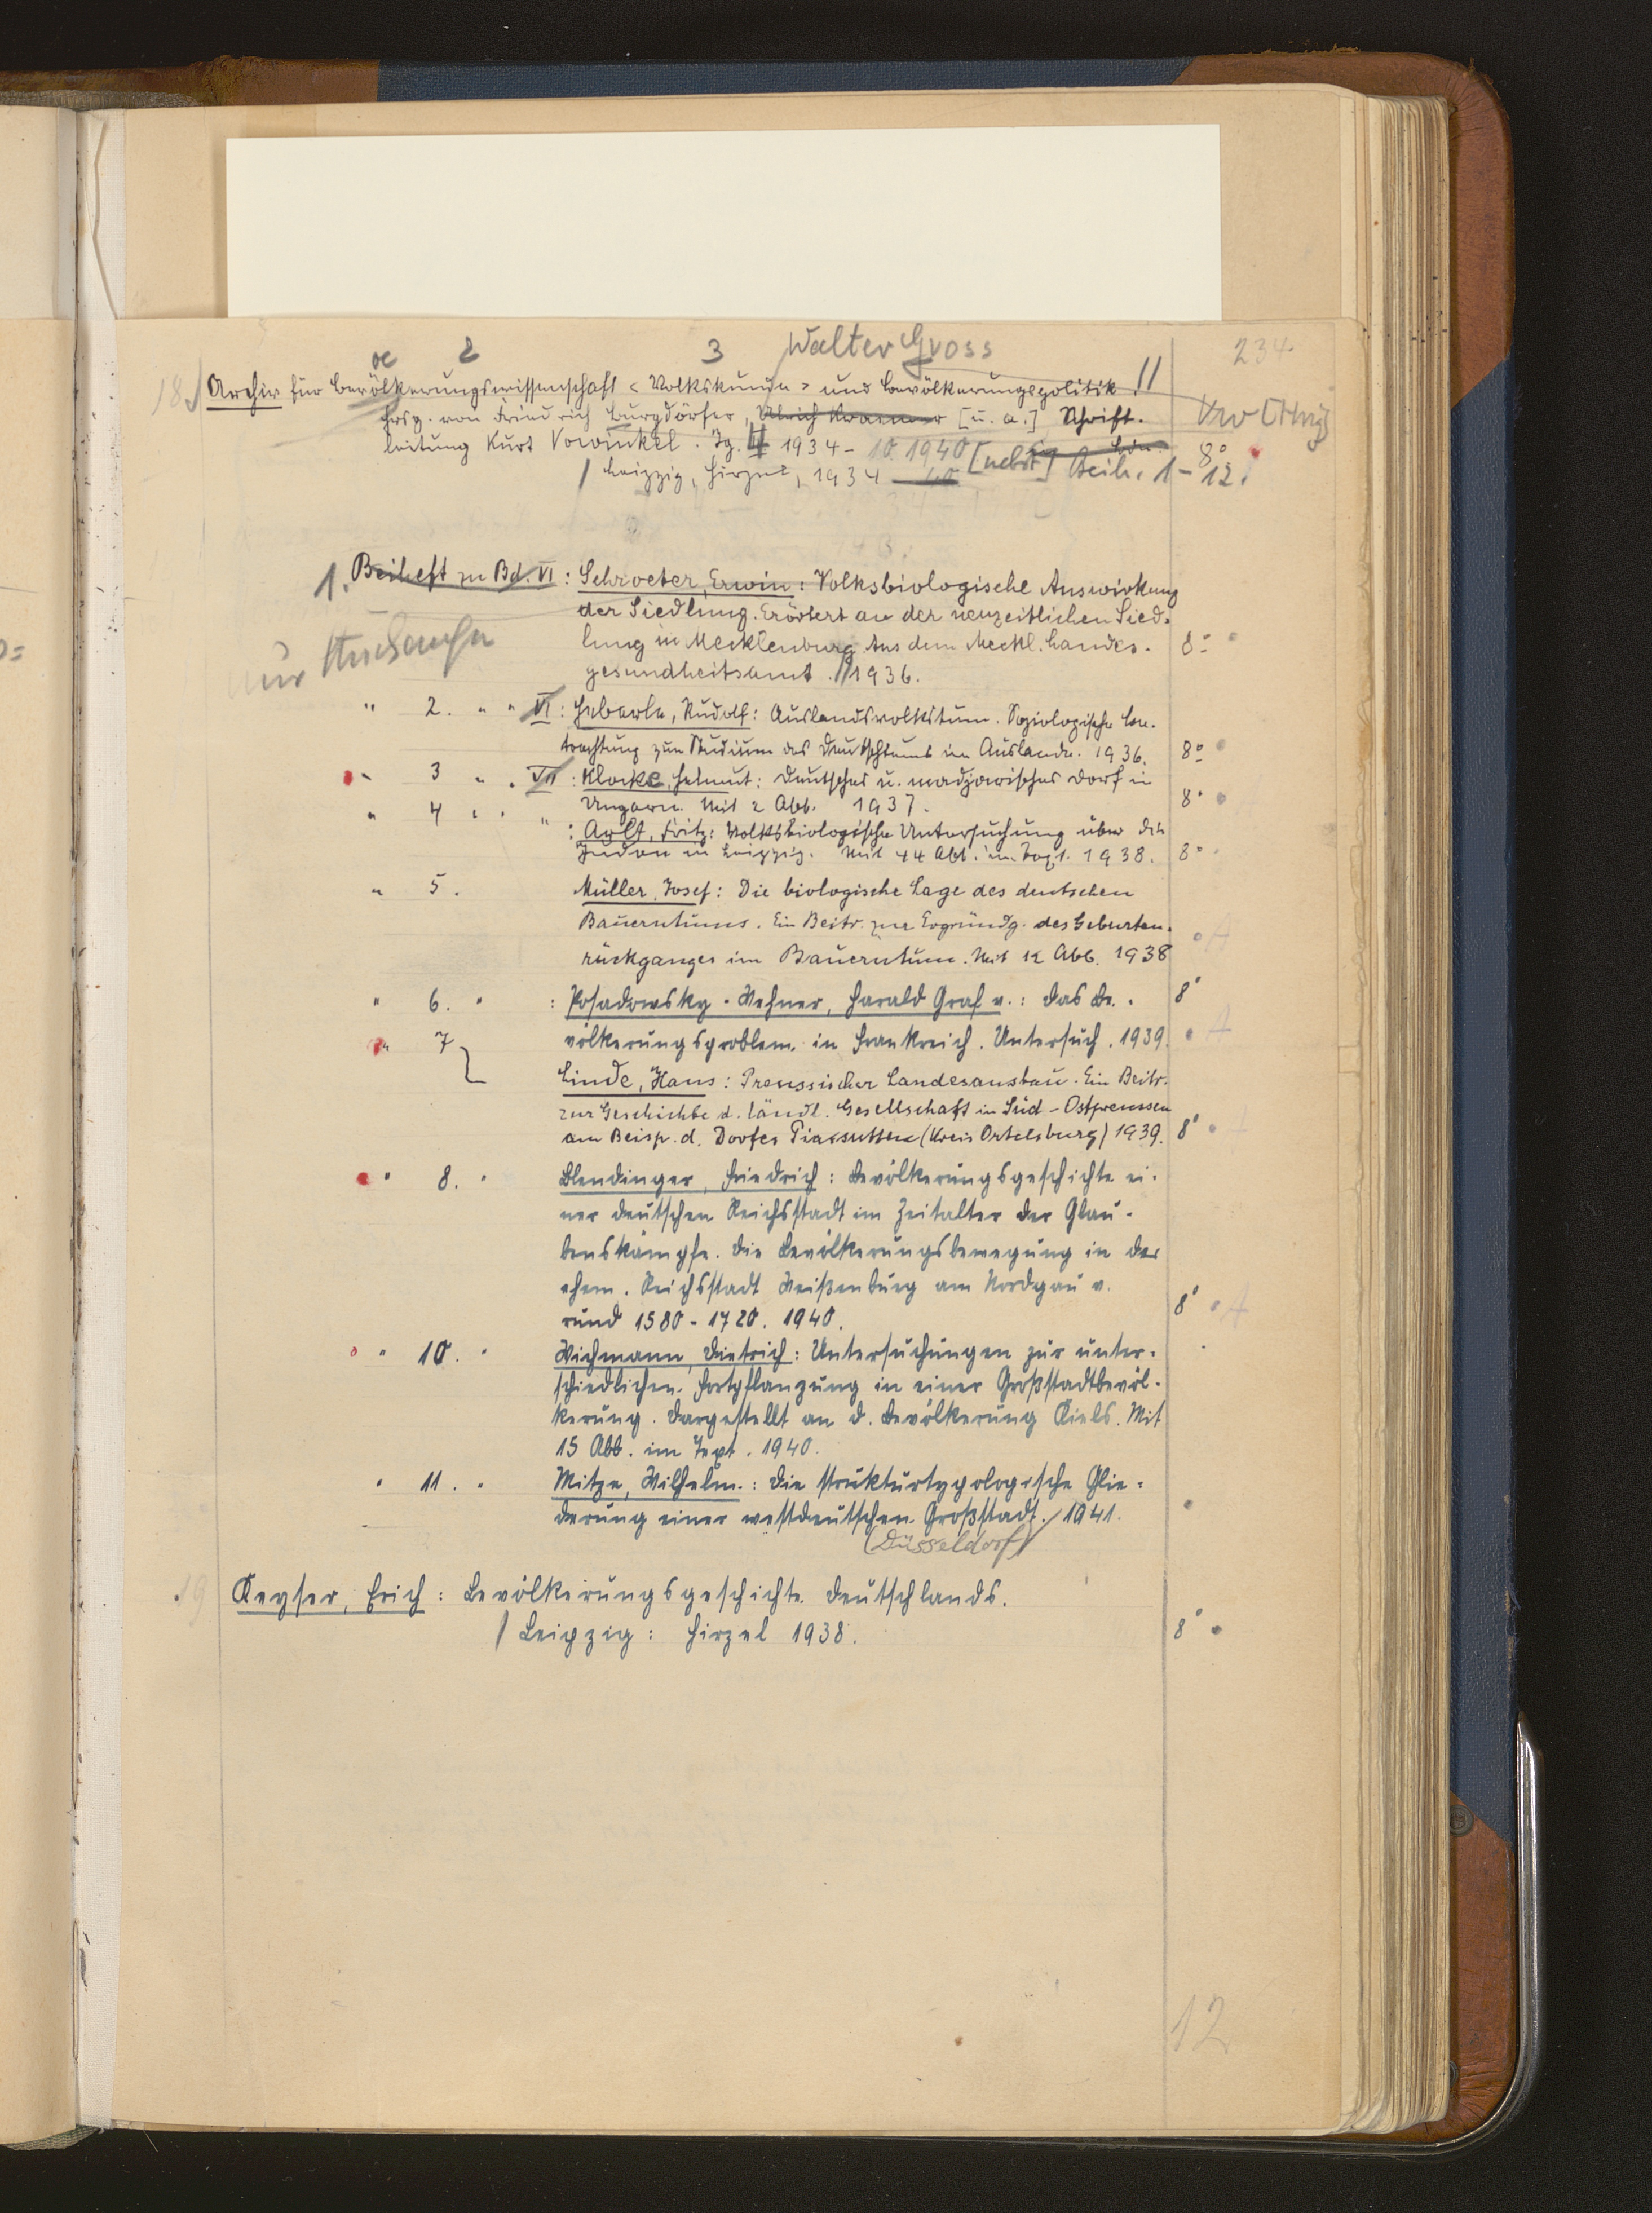 oe 2 3 Walter Gross 234
18. Archiv für Bevölkerungswissenschaft <Volkskunde> und Bevölkerungspolitik. II
Hrsg. von Friedrich Burgdörfer, [u. a.] Schrift-
leitung Kurt Vowinkel. Jg. 4 1934 - 10. 1940 [nebst] Beih. 1 - 12. 8°
/ Leipzig, Hirzel, 1934
1. Beiheft zu Bd. VI: Schroeter, Erwin: Volksbiologische Auswirkung
der Siedlung. Erörtert an der neuzeitlichen Sied-
lung in Mecklenburg. Aus dem Meckl. Landes- 8°
nur
gesundheitsamt. // 1936.
" 2. " " VI: Heberle, Rudolf: Auslandsvolkstum. Soziologische Be-
trachtung zum Studium des Deutschtums im Auslande. 1936. 8°
" 3 " " VII: Klocke, Helmut: Deutsches u. madjarisches Dorf in
Ungarn. Mit 2 Abb. 1937. 8°
" 4 " " " : Arlt, Fritz: Volksbiologische Untersuchung über die
Juden in Leipzig. Mit 44 Abb. im Text. 1938. 8°
" 5. Müller, Josef: Die biologische Lage des deutschen
Bauerntums. Ein Beitr. zur Ergründg. des Geburten-
rückganges im Bauerntum. Mit 12 Abb. 1938 A
" 6. " : Posadowsky-Wehner, Harald Graf v.: Das Be- 8°
völkerungsproblem in Frankreich. Untersuch. 1939. A
" 7
Linde, Hans: Preussischer Landesausbau. Ein Beitr.
zur Geschichte d. ländl. Gesellschaft in Süd-Ostpreussen
am Beisp. d. Dorfes Piassutten (Kreis Ortelsburg) 1939. 8°
" 8. " Blendinger, Friedrich: Bevölkerungsgeschichte ei-
ner deutschen Reichsstadt im Zeitalter der Glau-
benskämpfe. Die Bevölkerungsbewegung in der
ehem. Reichsstadt Weißenburg am Nordgau v.
rund 1580 - 1720. 1940. 8° A
" 10. " Wichmann, Dietrich: Untersuchungen zur unter-
schiedlichen Fortpflanzung in einer Großstadtbevöl-
kerung. Dargestellt an d. Bevölkerung Kiels. Mit
15 Abb. im Text. 1940.
" 11. " Mitze, Wilhelm: Die strukturtypologische Glie-
derung einer westdeutschen Großstadt. / 1941.
(Düsseldorf)
19 Keyser, Erich: Bevölkerungsgeschichte Deutschlands.
/ Leipzig: Hirzel 1938. 8°
12